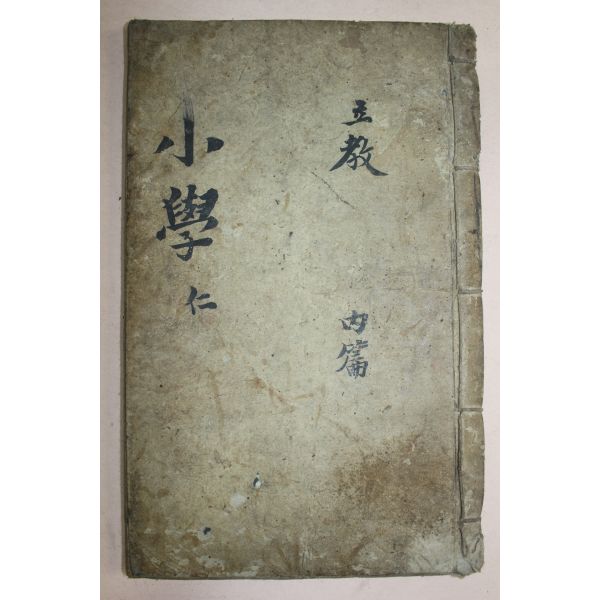 立教
內篇
小學
仁